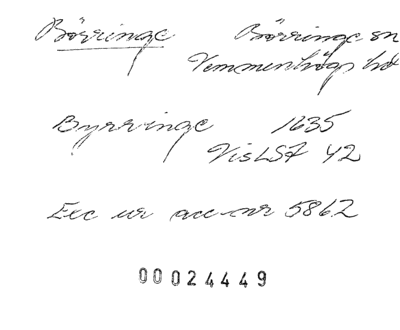 Börringe Börringe sn
Vemmenhögs hd
Byrringe 1635
VisLSt 42
Exc ur acc-nr 5862
00024449